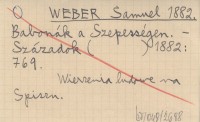 O WEBER Samuel 1882.
Babonák a Szepességen. -
Századok ( 1882:
769.
Wierzenia ludowe na
Spiszu.